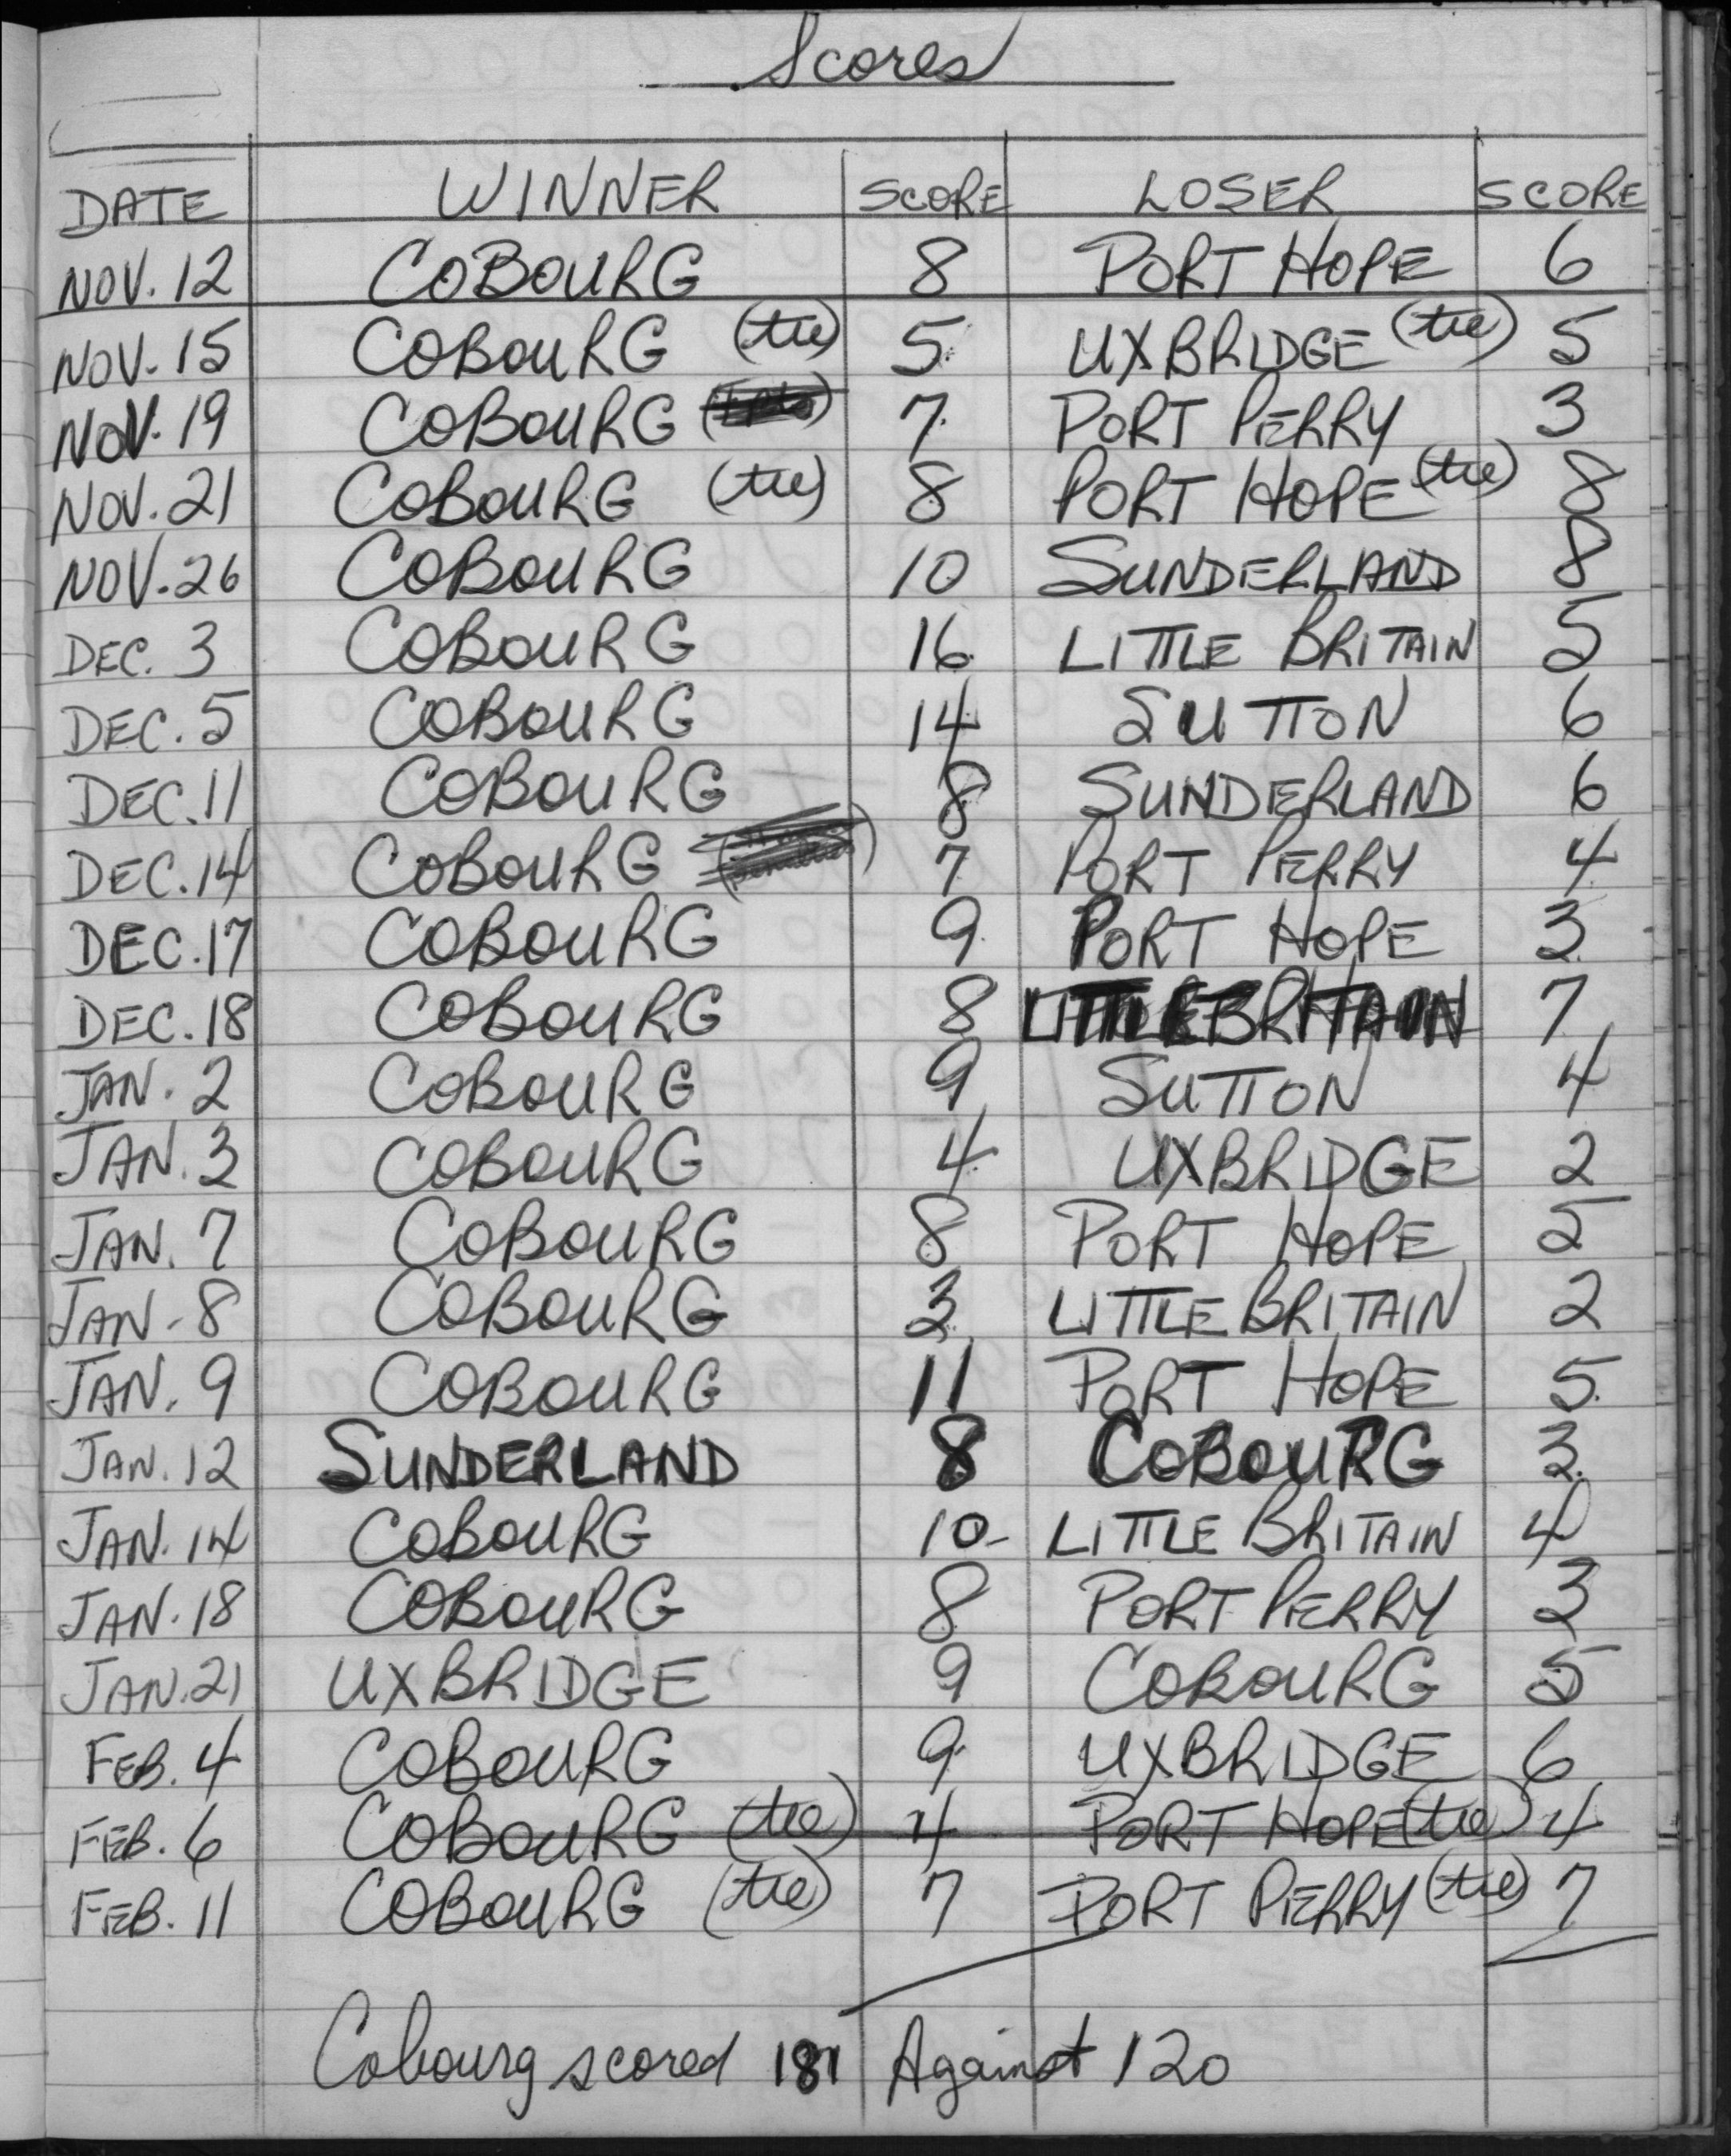 Scores
DATE WINNER SCORE LOSER SCORE
NOV. 12 COBOURG 8 PORT HOPE 6
NOV. 15 COBOURG (tie) 5 UXBRIDGE (tie) 5
NOV. 19 COBOURG 7 PORT PERRY 3
NOV. 21 COBOURG (tie) 8 PORT HOPE (tie) 8
NOV. 26 COBOURG 10 SUNDERLAND 8
DEC. 3 COBOURG 16 LITTLE BRITAIN 5
DEC. 5 COBOURG 14 SUTTON 6
DEC. 11 COBOURG 8 SUNDERLAND 6
DEC. 14 COBOURG 7 PORT PERRY 4
DEC. 17 COBOURG 9 PORT HOPE 3
DEC. 18 COBOURG 8 LITTLE BRITAIN 7
JAN. 2 COBOURG 9 SUTTON 4
JAN. 3 COBOURG 4 UXBRIDGE 2
JAN. 7 COBOURG 8 PORT HOPE 5
JAN - 8 COBOURG 3 LITTLE BRITAIN 2
JAN. 9 COBOURG 11 PORT HOPE 5
JAN. 12 SUNDERLAND 8 COBOURG 3
JAN. 14 COBOURG 10 LITTLE BRITAIN 4
JAN. 18 COBOURG 8 PORT PERRY 3
JAN. 21 UXBRIDGE 9 COBOURG 5
FEB. 4 COBOURG 9 UXBRIDGE 6
FEB. 6 COBOURG (tie) 4 PORT HOPE (tie) 4
FEB. 11 COBOURG (tie) 7 PORT PERRY (tie) 7
Cobourg scored 181 Against 120